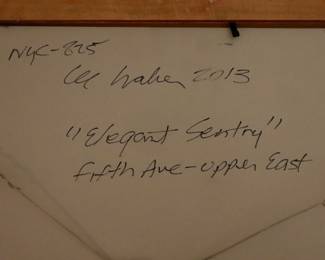 NYC-225
2013
"Elegant Sentry"
Fifth Ave-Upper East